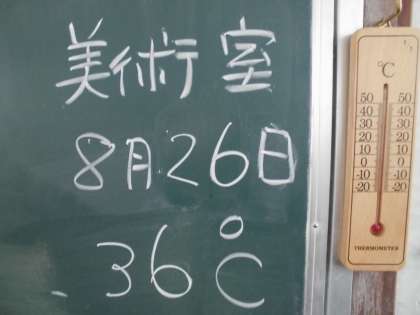 美術室
8月26日
36℃
°C
50 50
40 40
30 30
20 20
10 10
0 0
-10 -10
-20 -20
THERMOMETER